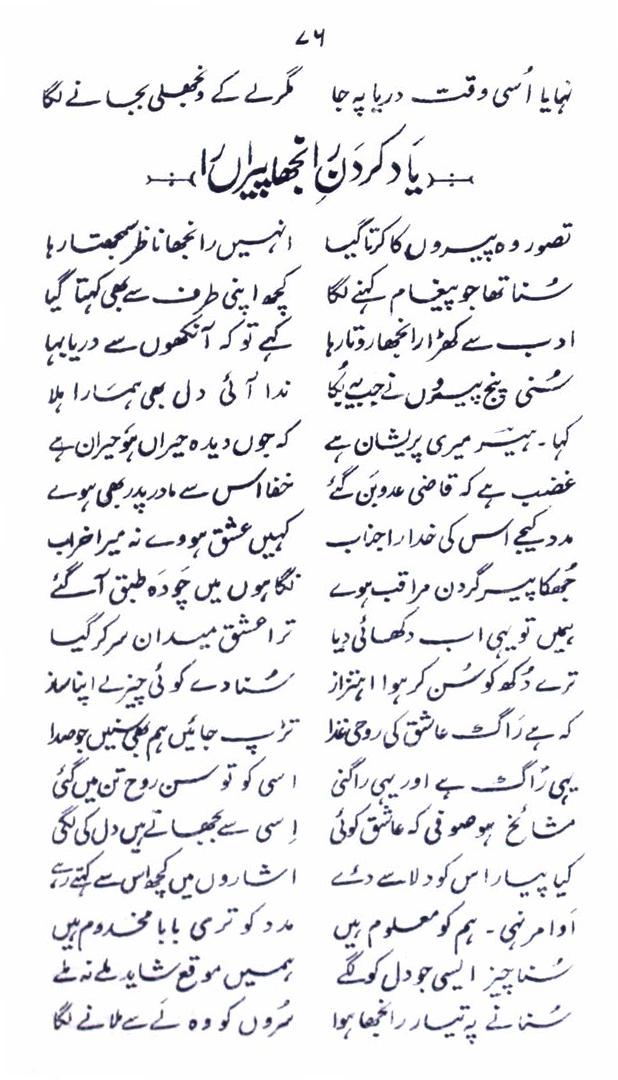 ۷۶
نہایا اُسی وقت دریا پہ جا مگر لے کے ونجھلی بجانے لگا
یاد کردنِ رانجھا پیراں را
تصور وہ پیروں کا کرتا گیا انہیں رانجھا ناظر سمجھتا رہا
سُنا تھا جو پیغام کہنے لگا کچھ اپنی طرف سے بھی کہتا گیا
ادب سے کھڑا رانجھا روتا رہا کہے تو کہ آنکھوں سے دریا بہا
سُنی پنج پیروں نے جب یہ بُکا ندا آئی دل بھی ہمارا ہلا
کہا۔ ہیر میری پریشان ہے کہ جوں دیدہ حیراں ہو حیران ہے
غضب ہے کہ قاضی عدو بن گئے خفا اس سے مادر پدر بھی ہوے
مدد کیجے اس کی خدارا جناب کہیں عشق ہووے نہ میرا خراب
جُھکا پیر گردن مراقب ہوے نگاہوں میں چَودہ طبق آ گئے
ہمیں تو یہی اب دکھائی دیا ترا عشق میدان سر کر گیا
ترے دُکھ کو سُن کر ہوا اہتزاز سُنا دے کوئی چیز لے اپنا ساز
کہ ہے رَاگ عاشق کی روحی غذا تڑپ جائیں ہم بھی سنیں جو صدا
یہی رَاگ ہے اور یہی راگنی اسی کو تو سن روح تن میں گئی
مشائخ ہو صوفی کہ عاشق کوئی اِسی سے بجھاتے ہیں دل کی لگی
کیا پیار اس کو دلاسے دئے اشاروں میں کچھ اس سے کہتے رہے
اوامر نہی۔ ہم کو معلوم ہیں مدد کو تری بابا مخدوم ہیں
سُنا چیز ایسی جو دل کو لگے ہمیں موقع شاید ملے نہ ملے
سُنانے پہ تیار رانجھا ہوا سُروں کو وہ نَے سے ملانے لگا